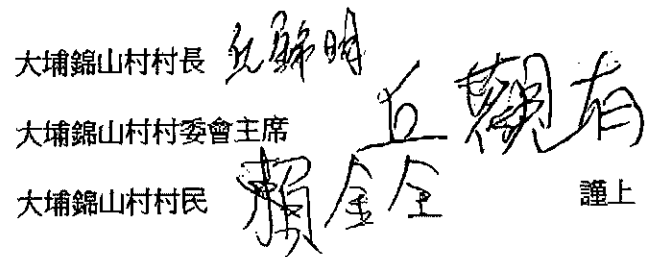 大埔錦山村村長 丘錦明
大埔錦山村村委會主席 丘觀有
大埔錦山村村民 賴金全 謹上